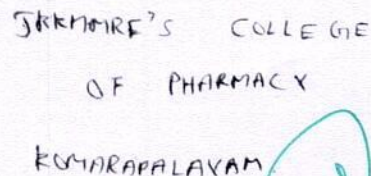 JKKMMRF'S COLLEGE
OF PHARMACY
KOMARAPALAYAM